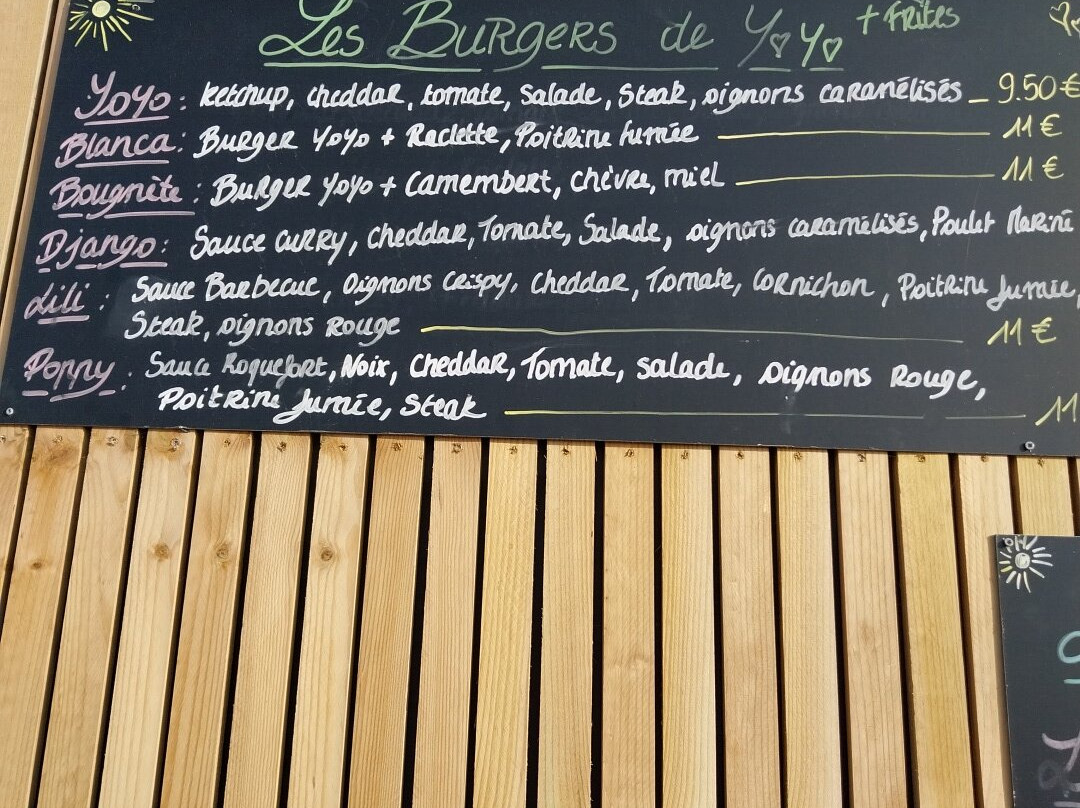 Les Burgers de YoYo + FRites
Yoyo : ketchup, cheddar, tomate, Salade, Steak, oignons caramélisés _ 9.50€
Blanca : Burger Yoyo + Raclette, Poitrine fumée 11€
Bougnète : Burger Yoyo + Camembert, chèvre, miel 11€
Django : Sauce curry, cheddar, Tomate, Salade, oignons caramélisés, Poulet Mariné
Lili : Sauce Barbecue, Oignons Crispy, cheddar, Tomate, Cornichon, Poitrine fumée,
Steak, oignons Rouge 11€
Poppy : Sauce Roquefort, Noix, Cheddar, Tomate, salade, oignons Rouge,
Poitrine fumée, Steak 11